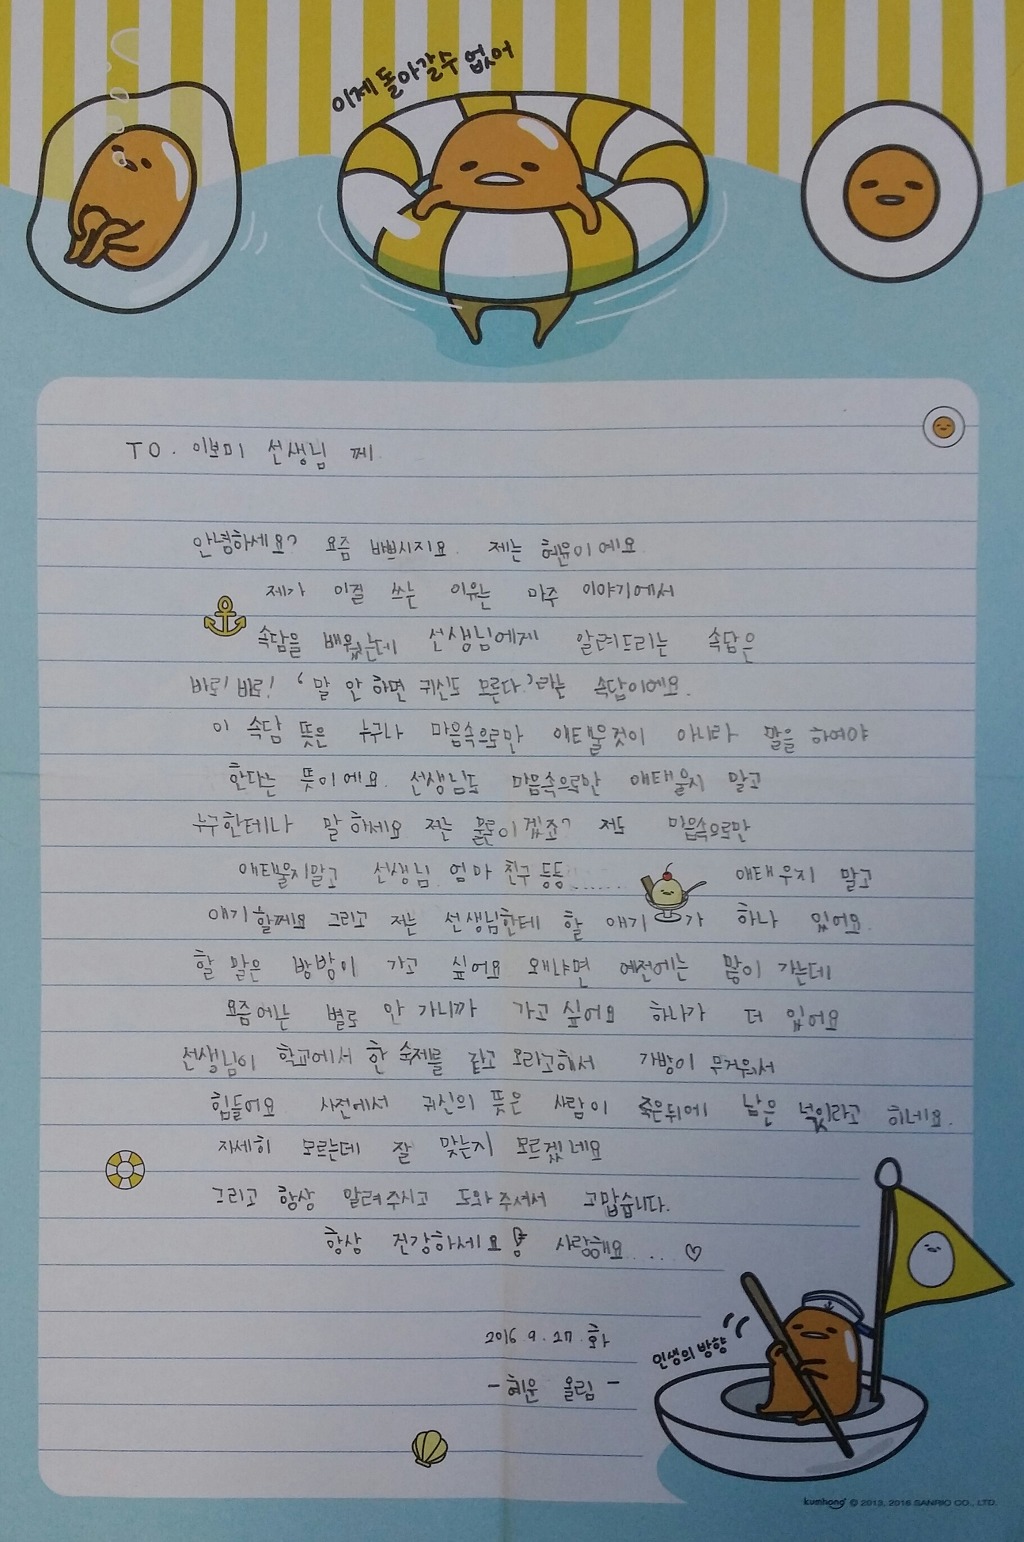 이제 돌아갈수 없어
TO. 이보미 선생님 께
안녕하세요? 요즘 바쁘시지요. 제는 혜윤이에요
제가 이걸 쓰는 이유는 마주 이야기에서
속담을 배웠는데 선생님에게 알려드리는 속담은
바로! 바로! '말 안 하면 귀신도 모른다.'라는 속답이에요.
이 속담 뜻은 누구나 마음속으로만 애태울것이 아니라 말을 하여야
한다는 뜻이에요. 선생님도 마음속으로만 애태울지 말고
누구한테나 말 하세요 저는 물론이겠죠? 저도 마음속으로만
애태울지말고 선생님 엄마 친구 등등...... 애태우지 말고
얘기 할께요 그리고 저는 선생님한테 할 얘기가 하나 있어요.
할 말은 방방이 가고 싶어요 왜냐면 예전에는 많이 가는데
요즘에는 별로 안 가니까 가고 싶어요 하나가 더 있어요
선생님이 학교에서 한 숙제를 갖고 오라고해서 가방이 무거워서
힘들어요 사전에서 귀신의 뜻은 사람이 죽은뒤에 남은 넋이라고 하네요.
자세히 모르는데 잘 맞는지 모르겠네요
그리고 항상 알려주시고 도와주셔서 고맙습니다.
항상 건강하세요 사랑해요.... ♡
2016. 9. 27. 화
인생의 방향
- 혜윤 올림 -
kumhong © 2013, 2016 SANRIO CO., LTD.